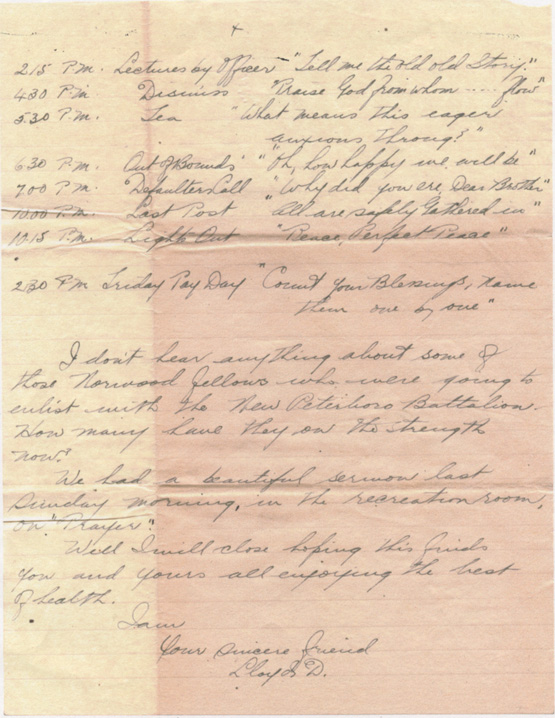 2 15 P.M. Lectures by Officer "Tell me the old old Story."
4 30 P.M. Dismiss "Praise God from whom .... flow"
5 30 P.M. Tea "What means this eager
anxious throng?"
6 30 P.M. Out of Bounds "Oh, how happy we will be"
7 00 P.M. "Defaulter Call "Why did you err, Dear Brother"
10 00 P.M. Last Post "All are safely Gathered in"
10 15 P.M. Lights Out "Peace, Perfect Peace"
2 30 P.M Friday Pay Day "Count Your Blessings, name
them one by one"
I don't hear anything about some of
those Norwood fellows who were going to
enlist with the New Peterboro Battalion.
How many have they on the strength
now?
We had a beautiful sermon last
Sunday morning, in the recreation room,
on "Prayer".
Well I will close hoping this finds
you and yours all enjoying the best
of health.
I am
Your sincere friend
Lloyd D.